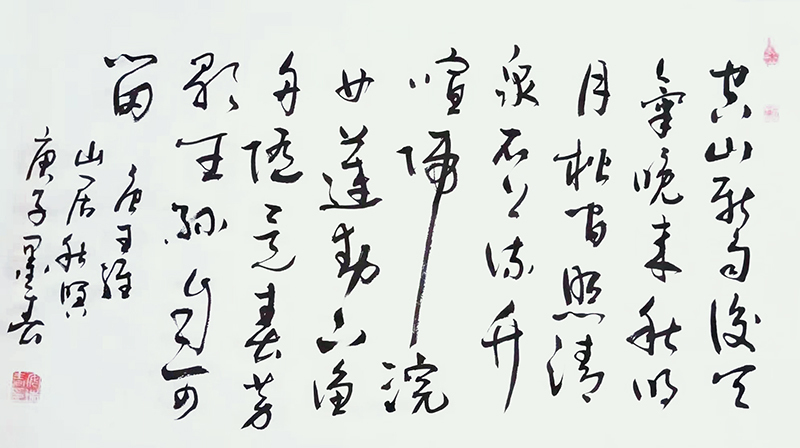 空山新雨後天
氣晚来秋明
月松间照清
泉石上流竹
喧歸浣
女蓮動下渔
舟随意春芳
歇王孙自可
留 唐王維
山居秋暝
庚子墨